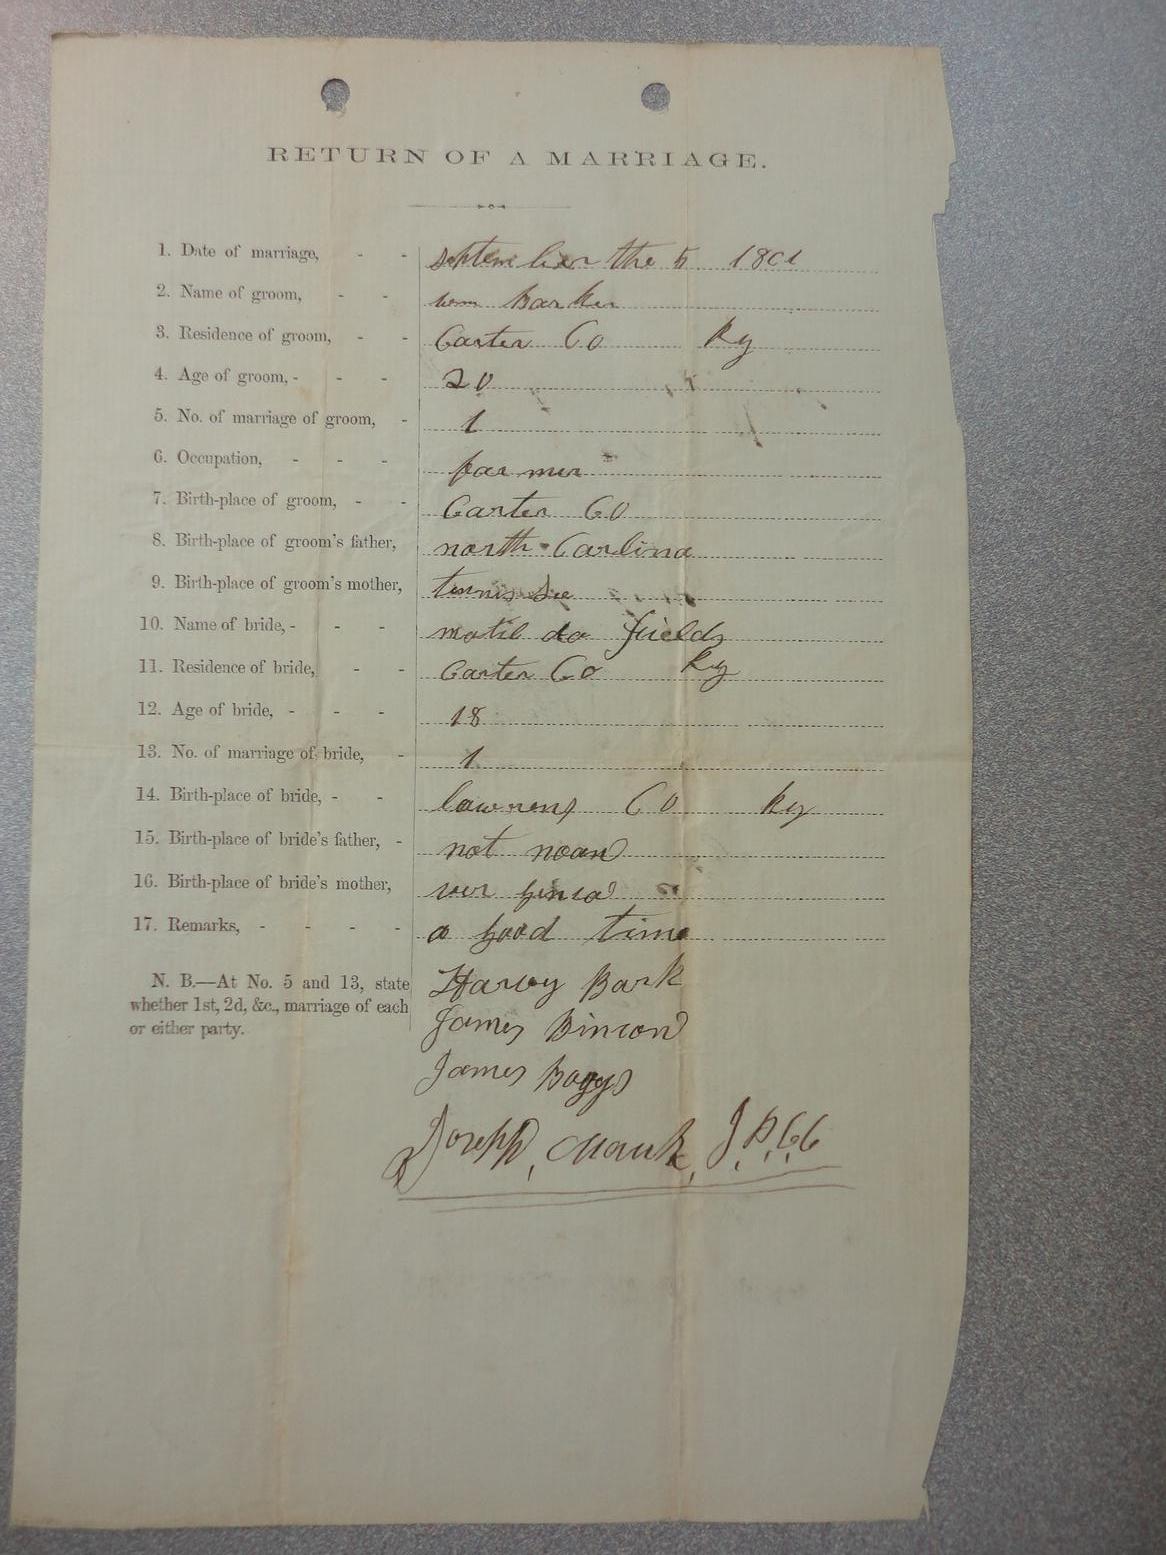 RETURN OF A MARRIAGE.
1. Date of marriage, - - September the 5 1801
2. Name of groom, - - wm Barker
3. Residence of groom, - - Carter Co Ky
4. Age of groom, - - - 20
5. No. of marriage of groom, - 1
6. Occupation, - - - farmer
7. Birth-place of groom, - - Carter CO
8. Birth-place of groom's father, north Carlina
9. Birth-place of groom's mother, tennis See
10. Name of bride, - - - matil da fields
11. Residence of bride, - - Carter Co Ky
12. Age of bride, - - - 18
13. No. of marriage of bride, - 1
14. Birth-place of bride, - - lawrens CO Ky
15. Birth-place of bride's father, - not noan
16. Birth-place of bride's mother, ver ginia
17. Remarks, - - - - a good time
N. B.—At No. 5 and 13, state
whether 1st, 2d, &c., marriage of each
or either party.
Harvy Bark
James
James Boggs
Joseph, Mauk, J,P,CC